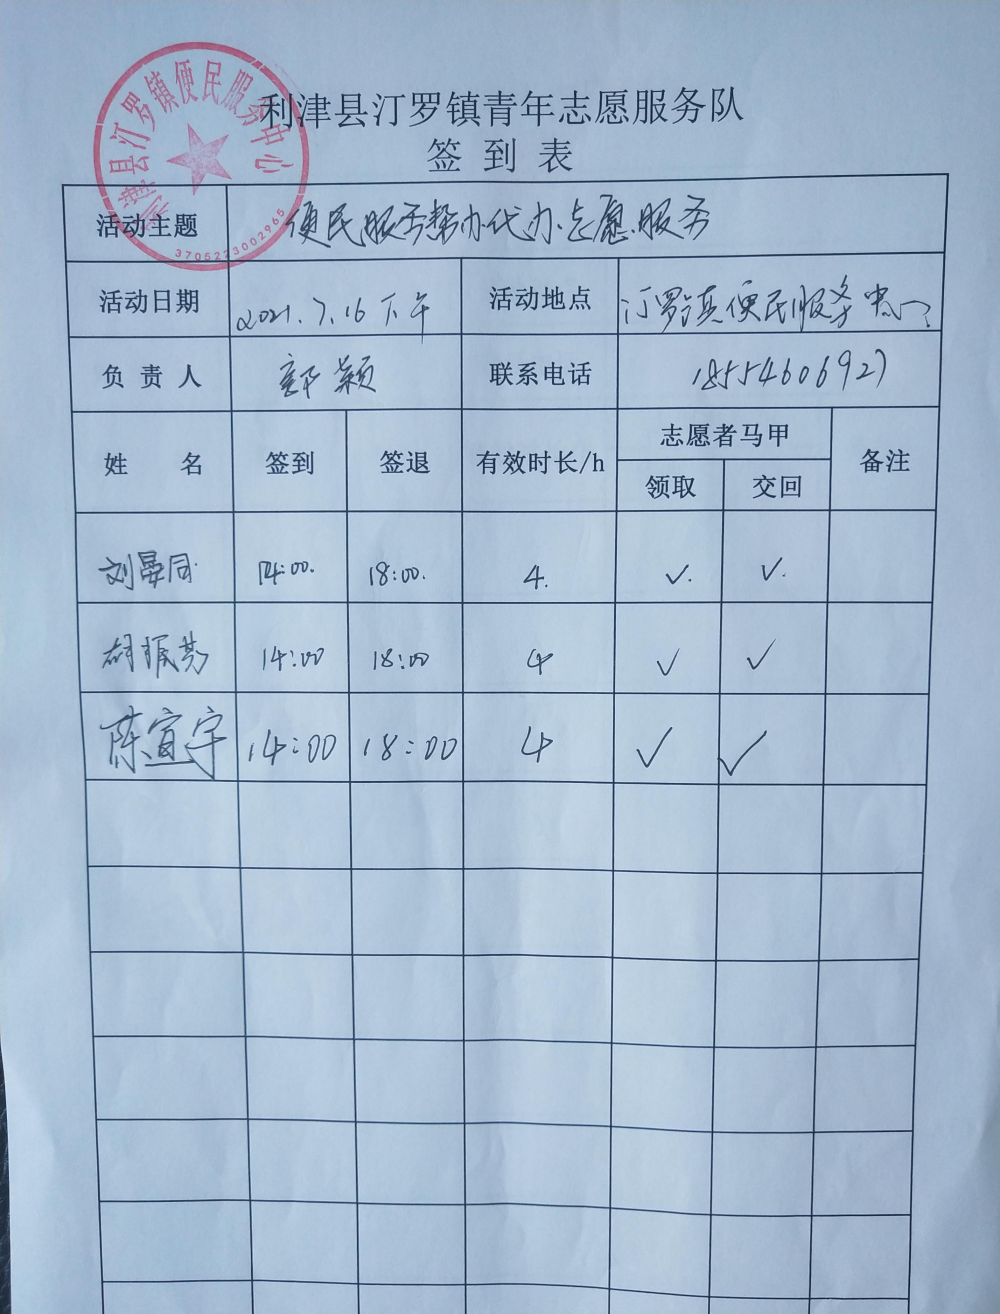 利津县汀罗镇便民服务中心
3705223002965
利津县汀罗镇青年志愿服务队
签到表
活动主题 便民服务帮办代办志愿服务
活动日期 2021.7.16下午 活动地点 汀罗镇便民服务中心
负责人 郭颖 联系电话 18554606927
姓名 签到 签退 有效时长/h 志愿者马甲 备注
领取 交回
刘晏同 14:00. 18:00. 4. ✓. ✓.
胡振芳 14:00 18:00 4 ✓ ✓
陈宣宇 14:00 18:00 4 ✓ ✓